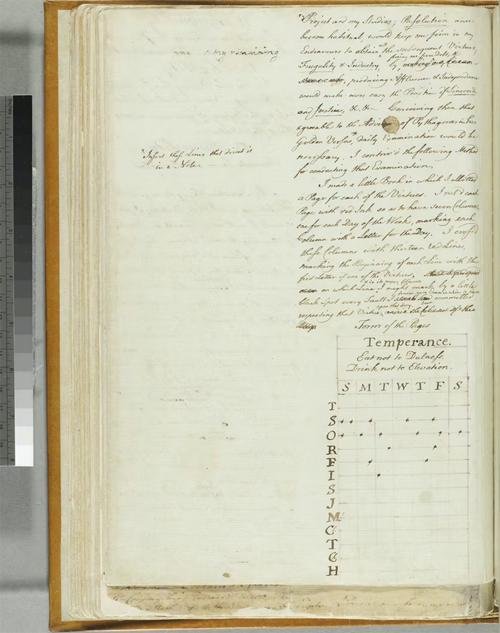 Project and my Studies; Resolution once
become habitual, would keep me firm in my
Endeavours to obtain all the subsequent Virtues;
Frugality & Industry, by
producing Affluence & Independence
would make more easy the Practice of Sincerity
and Justice, &c &c. Conceiving then that
agreable to the Advice of Pythagoras in his
Golden Verses, daily Examination would be
necessary, I contriv'd the following Method
for conducting that Examination.
Insert those Lines that direct it
in a Note.
I made a little Book in which I allotted
a Page for each of the Virtues. I rul'd each
Page with red Ink so as to have seven Columns,
one for each Day of the Week, marking each
Column with a Letter for the Day. I cross'd
these Columns with thirteen red Lines,
marking the Beginning of each Line with the
first Letter of one of the Virtues,
on which Line I might mark by a little
black Spot every Fault I
respecting that Virtue
Form of the Pages
Temperance.
Eat not to Dulness.
Drink not to Elevation.
S M T W T F S
T
S
O
R
F
I
S
J
M
C
T
C
H